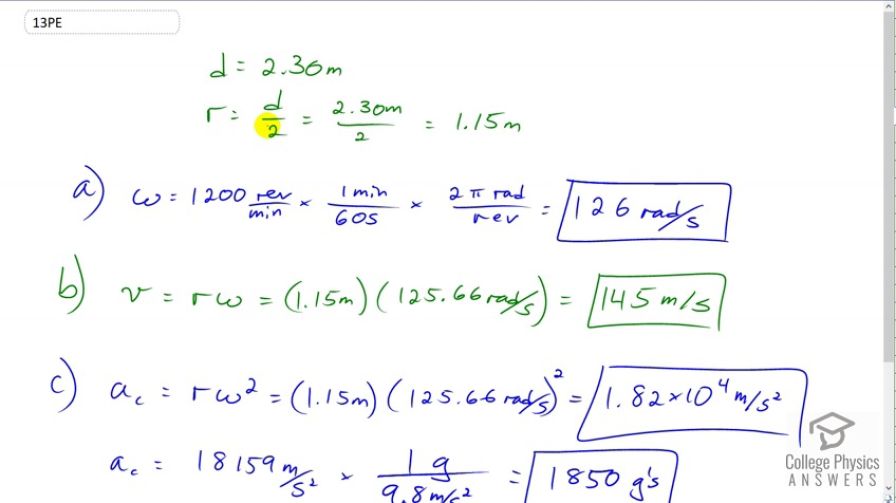 13PE
d = 2.30m
r = d/2 = 2.30m/2 = 1.15m
a) ω = 1200 rev/min × 1min/60s × 2π rad/rev = 126 rad/s
b) v = rω = (1.15m)(125.66 rad/s) = 145 m/s
c) a_c = rω² = (1.15m)(125.66 rad/s)² = 1.82×10⁴ m/s²
a_c = 18159 m/s² × 1g/9.8m/s² = 1850 g's
College Physics
ANSWERS